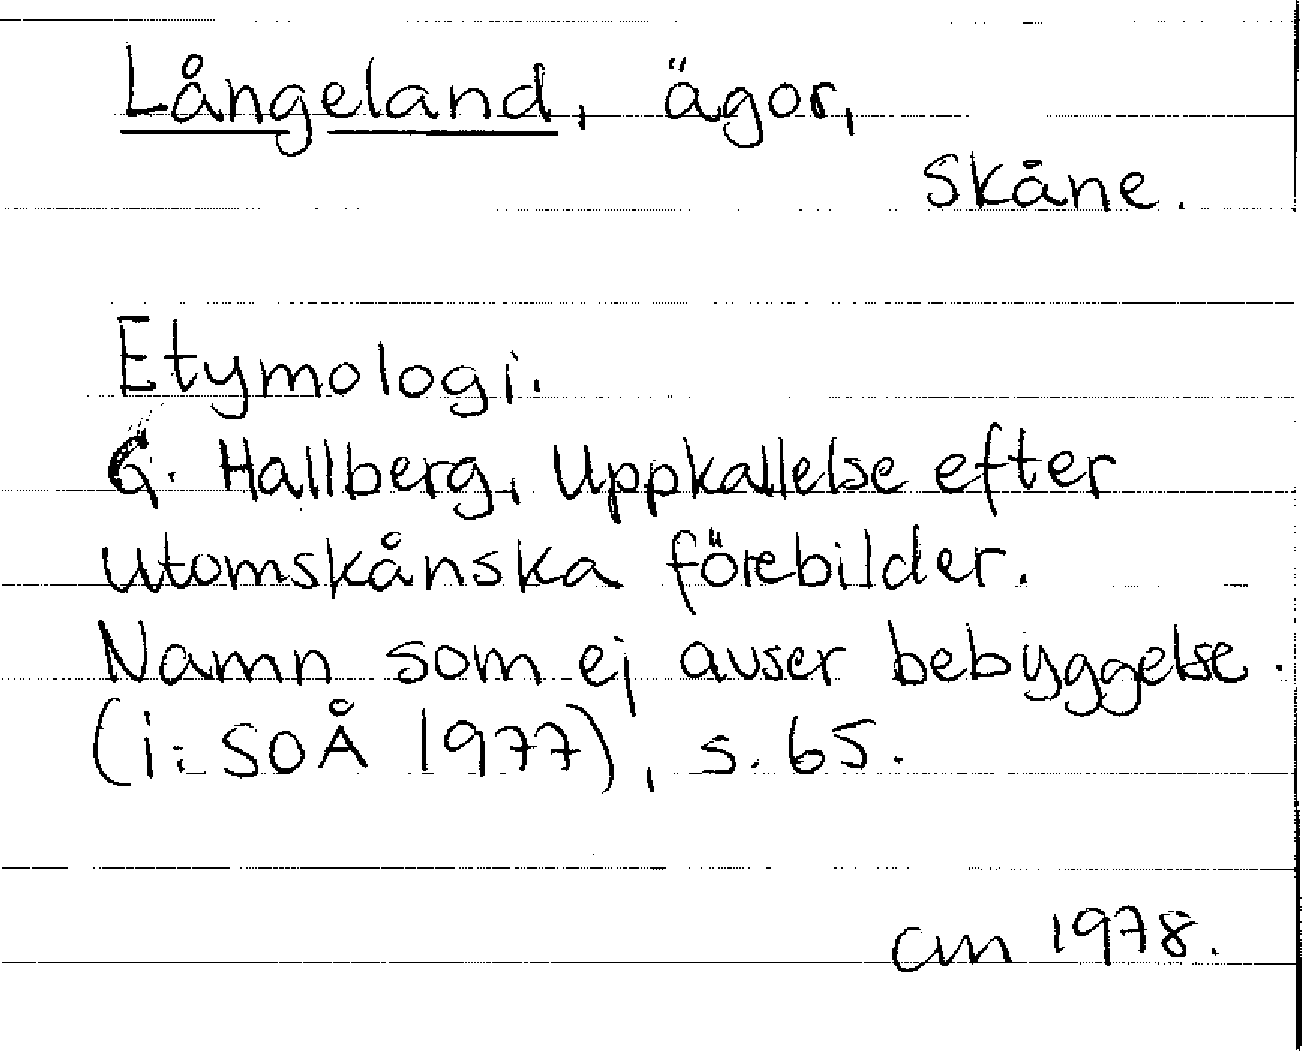 Långeland, ägor,
Skåne.
Etymologi.
G. Hallberg, Uppkallelse efter
utomskånska förebilder.
Namn som ej avser bebyggelse.
(i: SOÅ 1977), s. 65.
cm 1978.